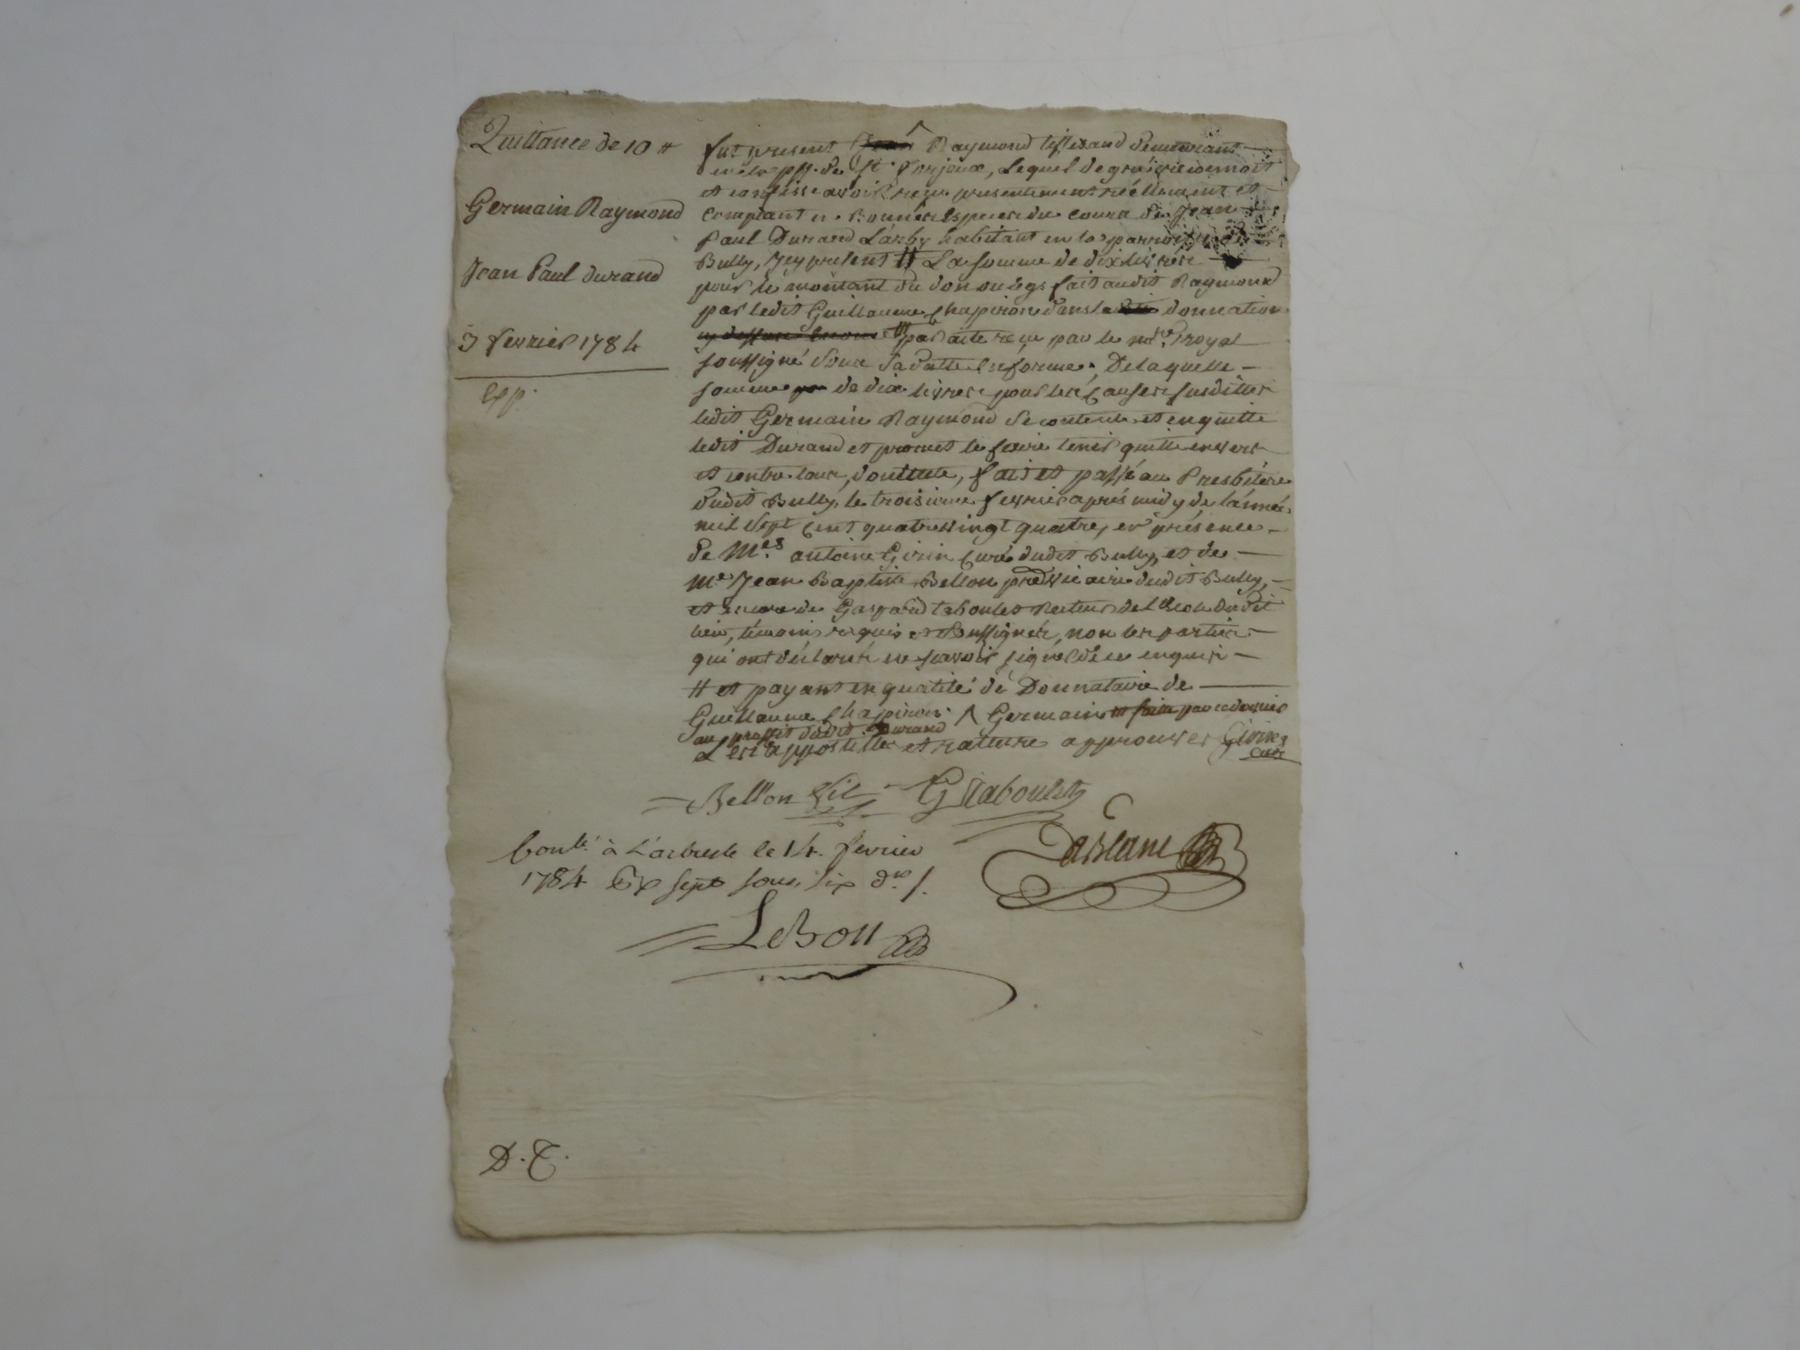 Quittance de 10 ₶
Germain Raymond
Jean Paul durand
3 fevrier 1784
Exp.
fut present Jean ^ Raymond tisserand demeurant
en la psse. de St. forjeux, Lequel de gré reconnoit
et confesse avoir reçu presentement réellement et
comptant en bonnes Especes du cours de Jean
Paul Durand L'arby habitant en la parroisse de
Bully, icy present # La somme de dix livres
pour le montant du don ou legs fait audit Raymond
par ledit Guillaume Chapiron dans la donnation
par acte reçu par le nore. royal
soussigné sous sa datte en forme, De laquelle
somme de dix livres pour les causes susdittes
ledit Germain Raymond se contente et en quitte
ledit Durand et promet le faire tenir quitte envers
et contre tous, dont acte, fait et passé au Presbitère
dudit Bully, le troisieme fevrier après midy de l'année
mil sept cent quatre vingt quatre, en présence
de Mes. antoine Girin Curé dudit Bully, et de
Me. Jean Baptiste Bellon vicaire dudit Bully,
et encore de Gaspard taboulet Recteur de l'Ecole dudit
lieu, témoins requis et soussignés, non les parties
qui ont déclaré ne scavoir signer de ce enquis
# et payant en qualité de Donnataire de
Guillaume Chapiron ^ Germain fait par ce dernier
au proffit dudit Durand
Les appostilles et rature approuvés Girin
Curé
Bellon Vic G Taboulet
Conle. à L'arbresle le 14. fevrier
1784 sept sous, six drs.
Lebon
D. T.